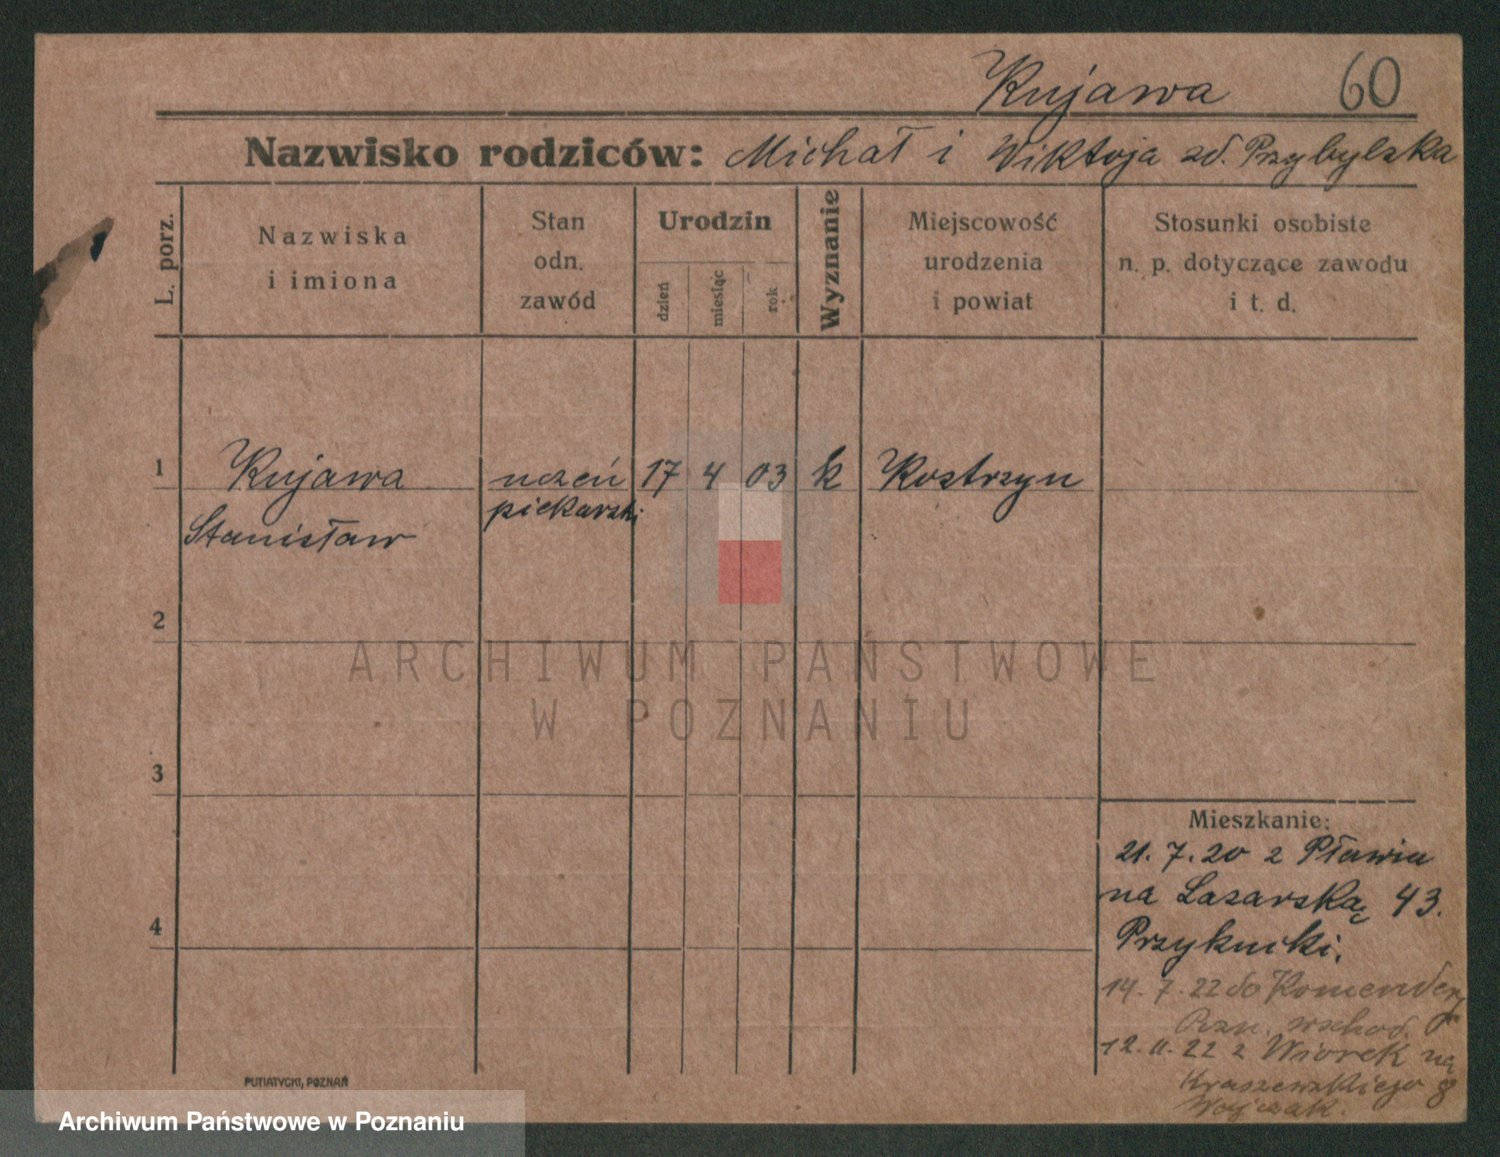 Kujawa 60
Nazwisko rodziców: Michał i Wiktoja zd. Przybylska
L. porz.
Nazwiska
i imiona
Stan
odn.
zawód
Urodzin
dzień
miesiąc
rok
Wyznanie
Miejscowość
urodzenia
i powiat
Stosunki osobiste
n. p. dotyczące zawodu
i t. d.
1 Kujawa uczeń 17 4 03 k Kostrzyn
piekarski
Stanisław
2
ARCHIWUM PAŃSTWOWE
W POZNANIU
3
Mieszkanie:
21. 7. 20 z Pławia
na Łazarską 43.
4
14. 7. 22 do Komendery
Pozn. wschod.
12. 11. 22 z Wiorek na
Kraszewskiego 8
Wojczak.
PUTIATYCKI, POZNAŃ
Archiwum Państwowe w Poznaniu